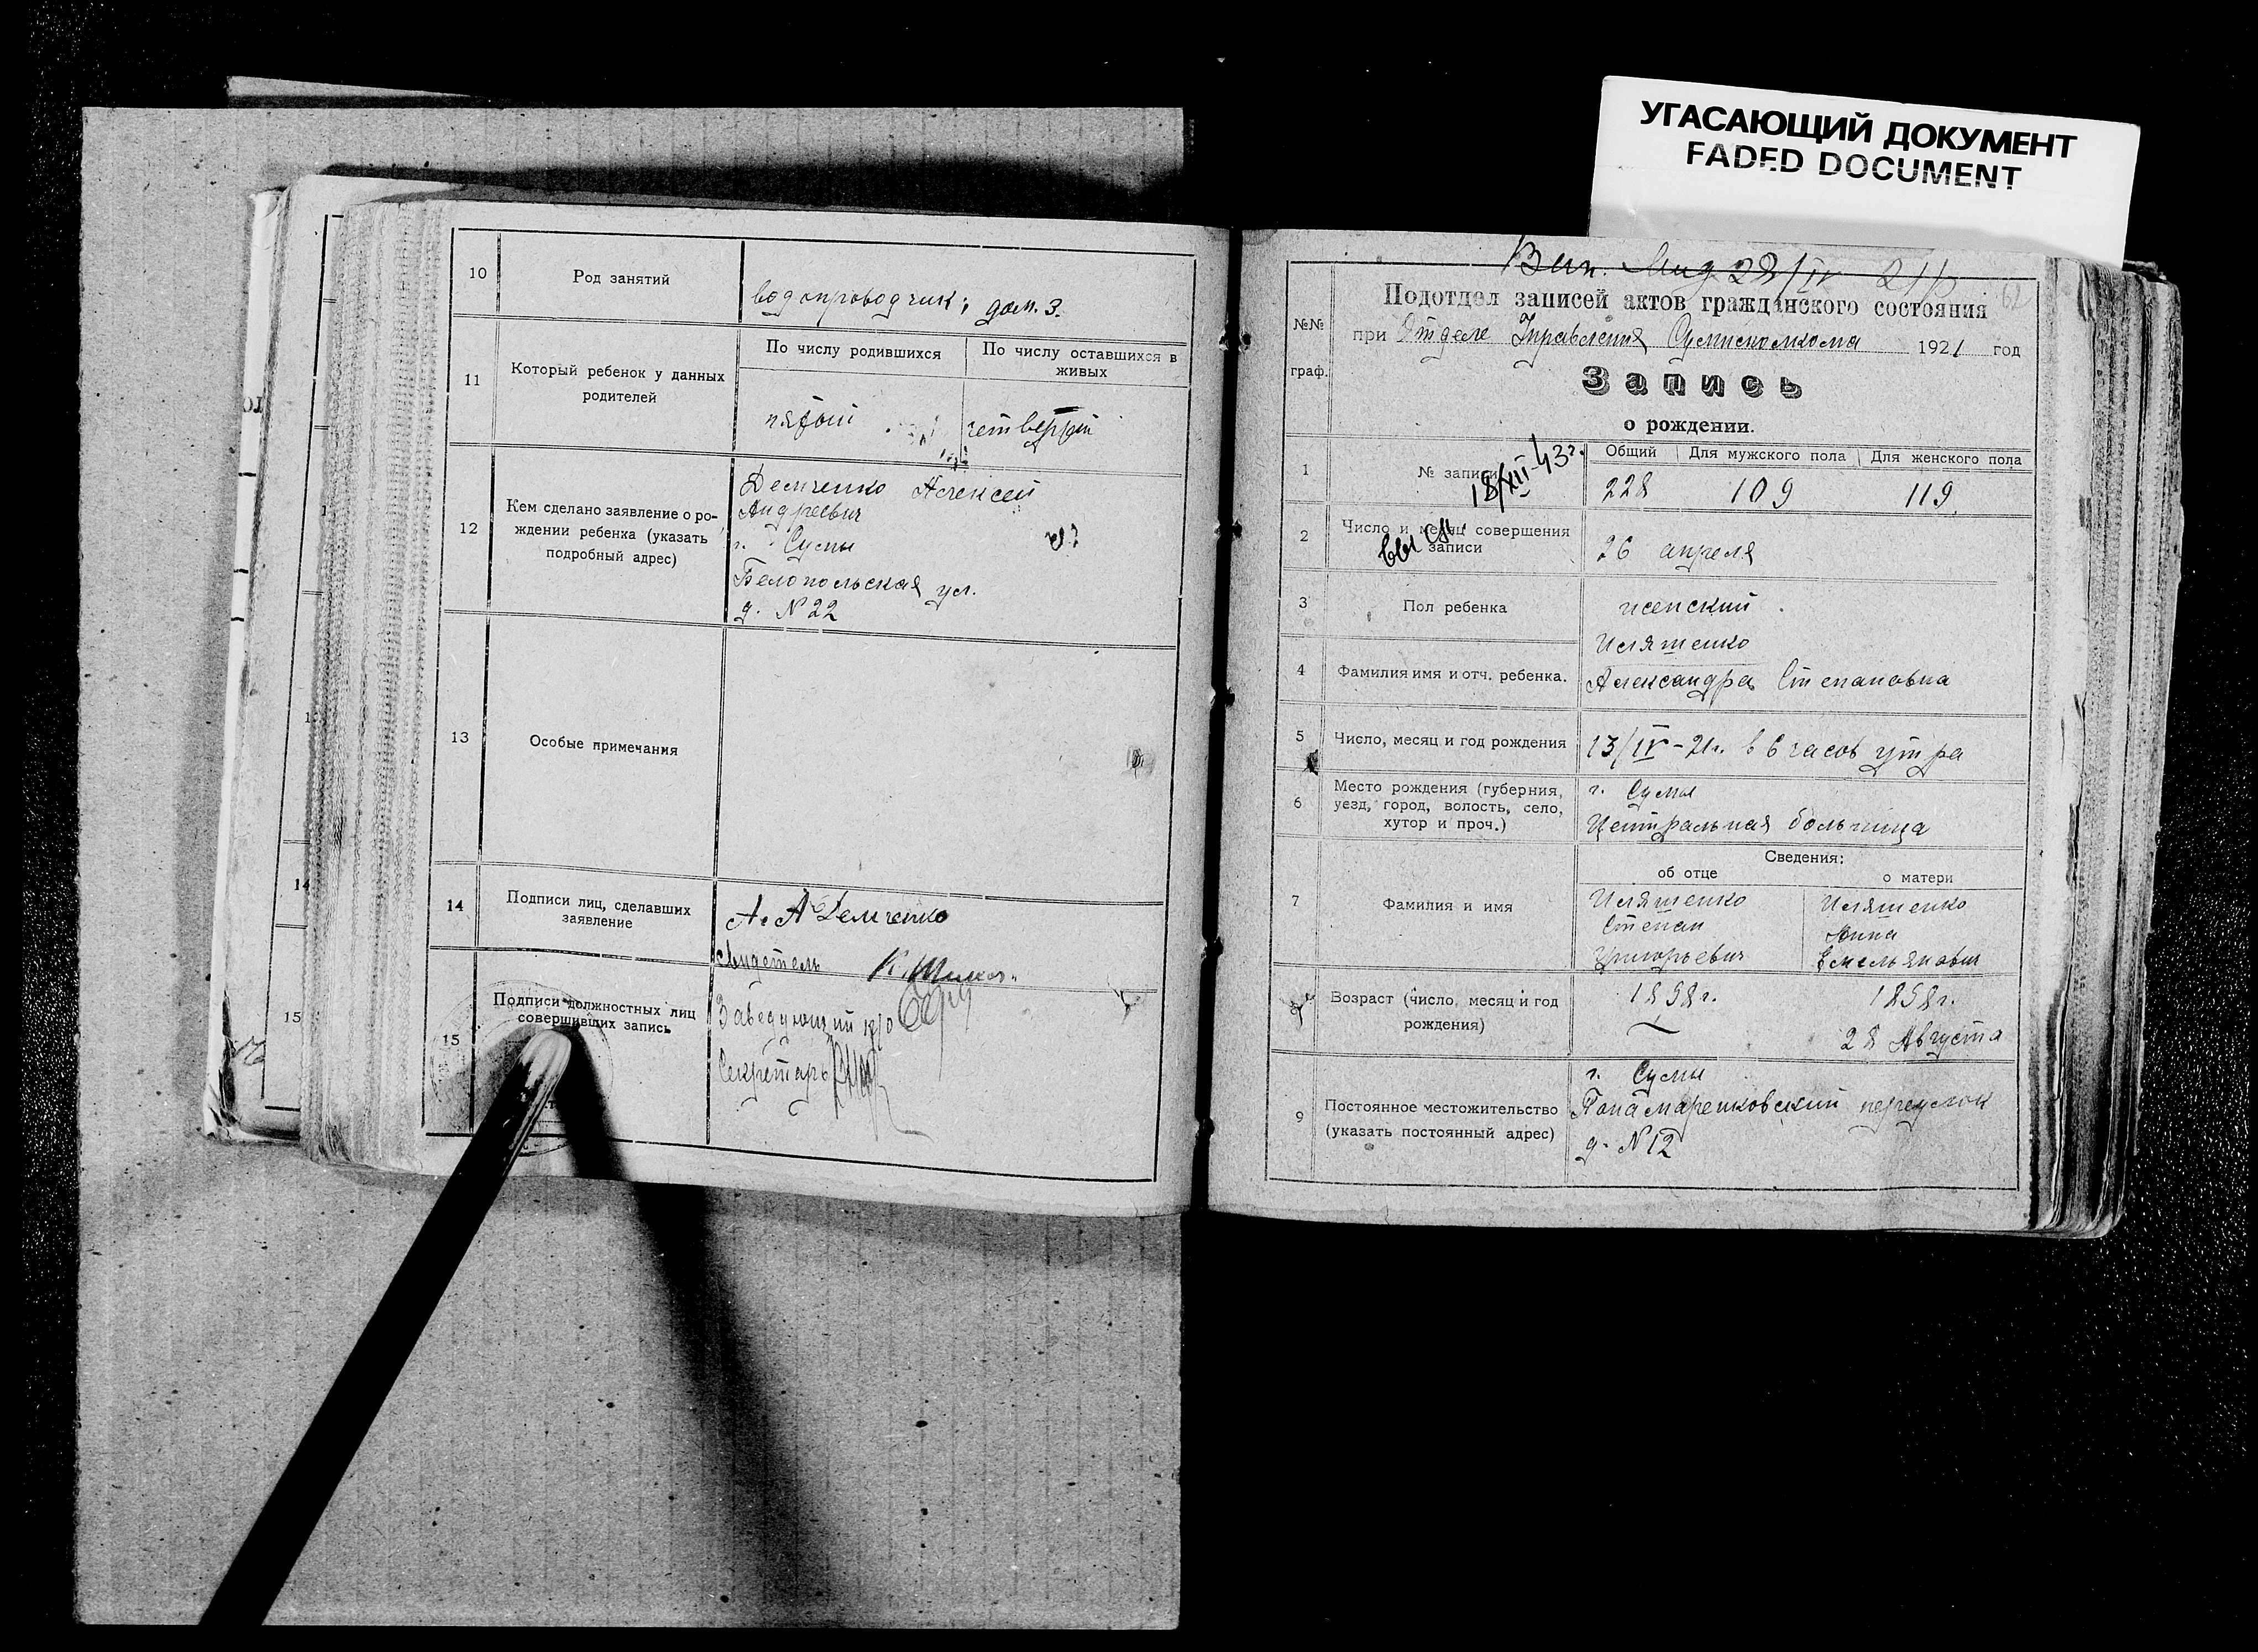 УГАСАЮЩИЙ ДОКУМЕНТ
FADED DOCUMENT
10
Род занятий
водопроводчик; дом. З.
11
Который ребенок у данных
родителей
По числу родившихся
По числу оставшихся в
живых
пятый
четвертый
12
Кем сделано заявление о ро-
ждении ребенка (указать
подробный адрес)
Демченко Алексей
Андреевич
г. Сумы
Белопольская ул.
д. N 22
13
Особые примечания
14
Подписи лиц, сделавших
заявление
А. А Демченко
Свидетель
15
Подписи должностных лиц
совершивших запись
Заведующий п/о
Секретарь
28/IV
№№
граф.
Подотдел записей актов гражданского состояния
при Отделе Управления Сумисполкома 1921 год
Запись
о рождении.
1
№ записи
18/XII-43г.
Общий
Для мужского пола
Для женского пола
228
109
119.
2
Число и месяц совершения
записи
26 апреля
3
Пол ребенка
женский
4
Фамилия имя и отч. ребенка.
Иляшенко
Александра Степановна
5
Число, месяц и год рождения
13/IV-21г. в 6 часов утра
6
Место рождения (губерния,
уезд, город, волость, село,
хутор и проч.)
г. Сумы
Центральная больница
7
Фамилия и имя
Сведения:
об отце
о матери
Иляшенко
Степан
Григорьевич
Иляшенко
Анна
Емельянович
Возраст (число, месяц и год
рождения)
1898г.
1898г.
28 Августа
9
Постоянное местожительство
(указать постоянный адрес)
г. Сумы
Понамаренковский переулок
д. N 12